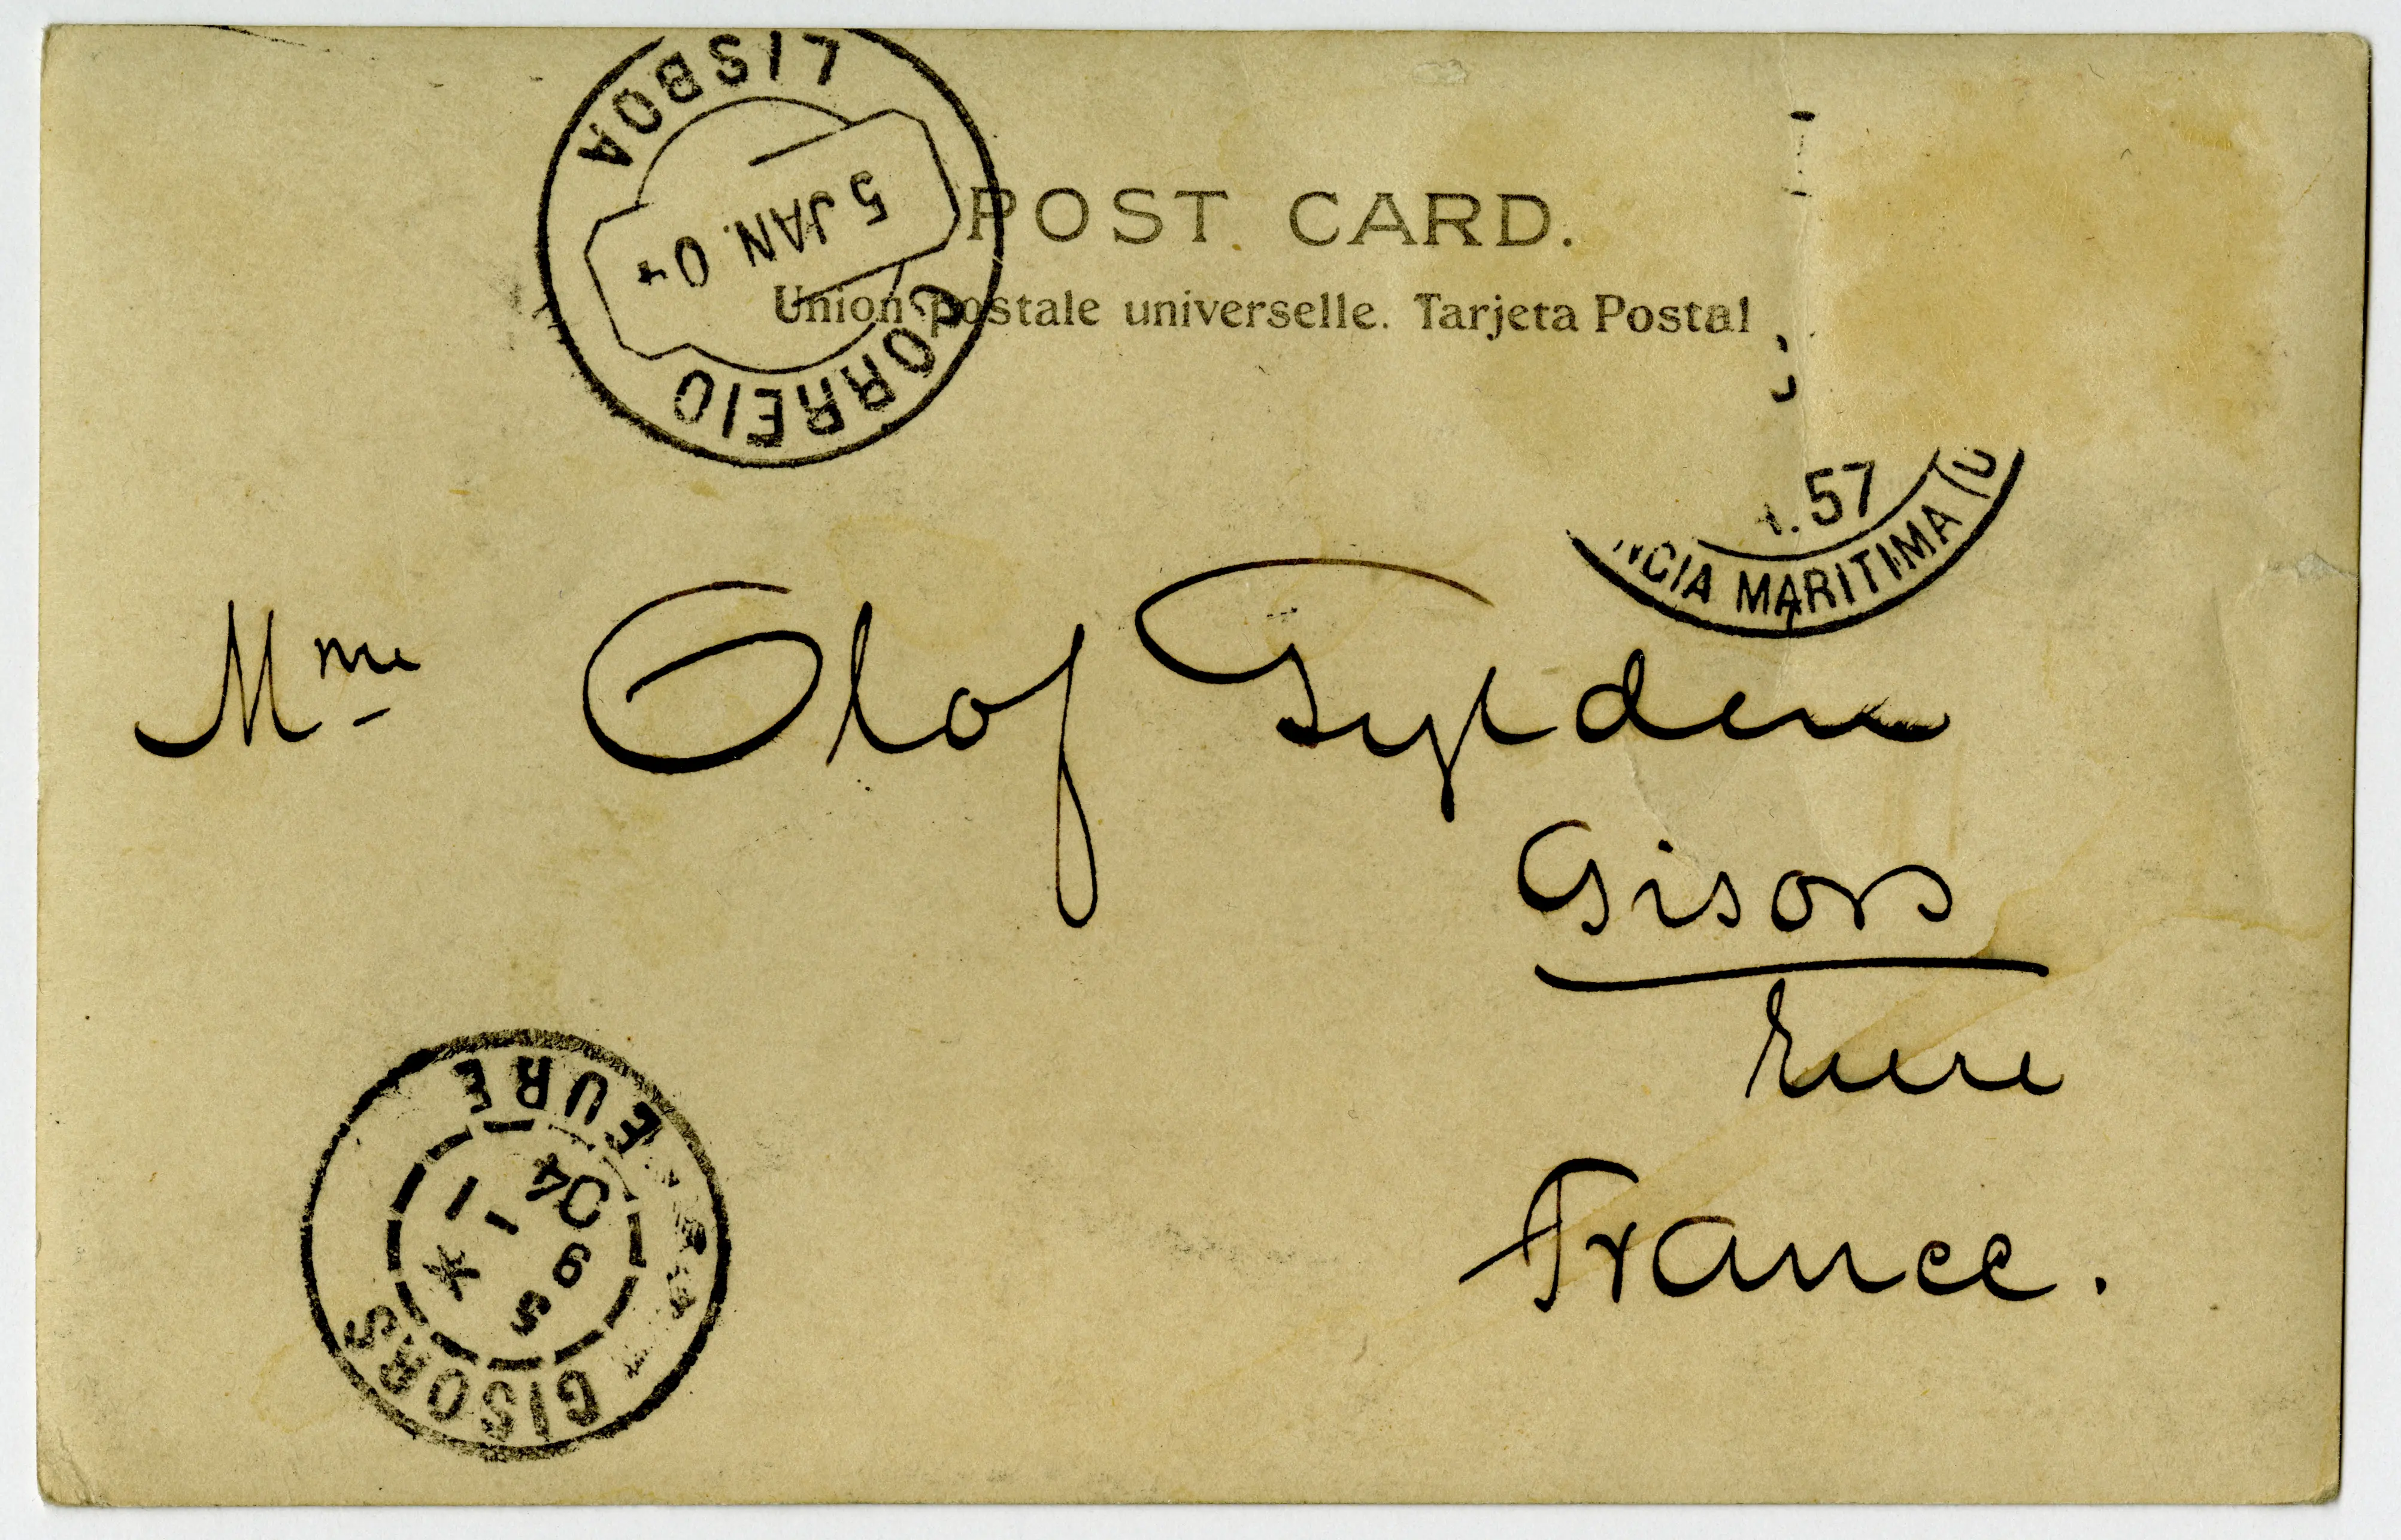 LISBOA
5 JAN. 04
CORREIO
POST CARD.
Union postale universelle. Tarjeta Postal
.57
NCIA MARITIMA
Mme Olof Gylden
Gisors
Eure
France.
EURE
5 9 -1 04
*
GISORS